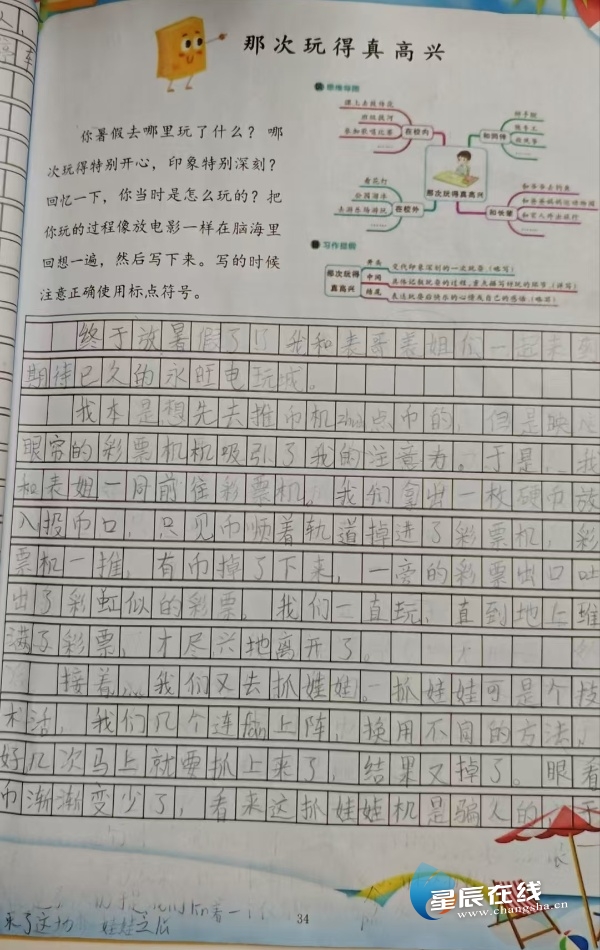 那次玩得真高兴
你暑假去哪里玩了什么？哪
次玩得特别开心，印象特别深刻？
回忆一下，你当时是怎么玩的？把
你玩的过程像放电影一样在脑海里
回想一遍，然后写下来。写的时候
注意正确使用标点符号。
思维导图
在校内
和同伴
那次玩得真高兴
在校外
和长辈
习作提纲
那次玩得真高兴
开头 交代印象深刻的一次玩耍（略写）
中间
结尾
终于放暑假了！我和表哥表姐们一起来到
期待已久的永旺电玩城。
我本是想先去推币机zhuàn点币的，但是映入
眼帘的彩票机机吸引了我的注意力。于是，我
和表姐一同前往彩票机。我们拿出一枚硬币放
入投币口，只见币顺着轨道掉进了彩票机，彩
票机一推，有币掉了下来，一旁的彩票出口吐
出了彩虹似的彩票。我们一直玩，直到地上堆
满了彩票，才尽兴地离开了。
接着，我们又去抓娃娃。抓娃娃可是个技
术活，我们几个连fān上阵，换用不同的方法，
好几次马上就要抓上来了，结果又掉了。眼看
币渐渐变少了，看来这抓娃娃机是骗人的，于
34
星辰在线
www.changsha.cn